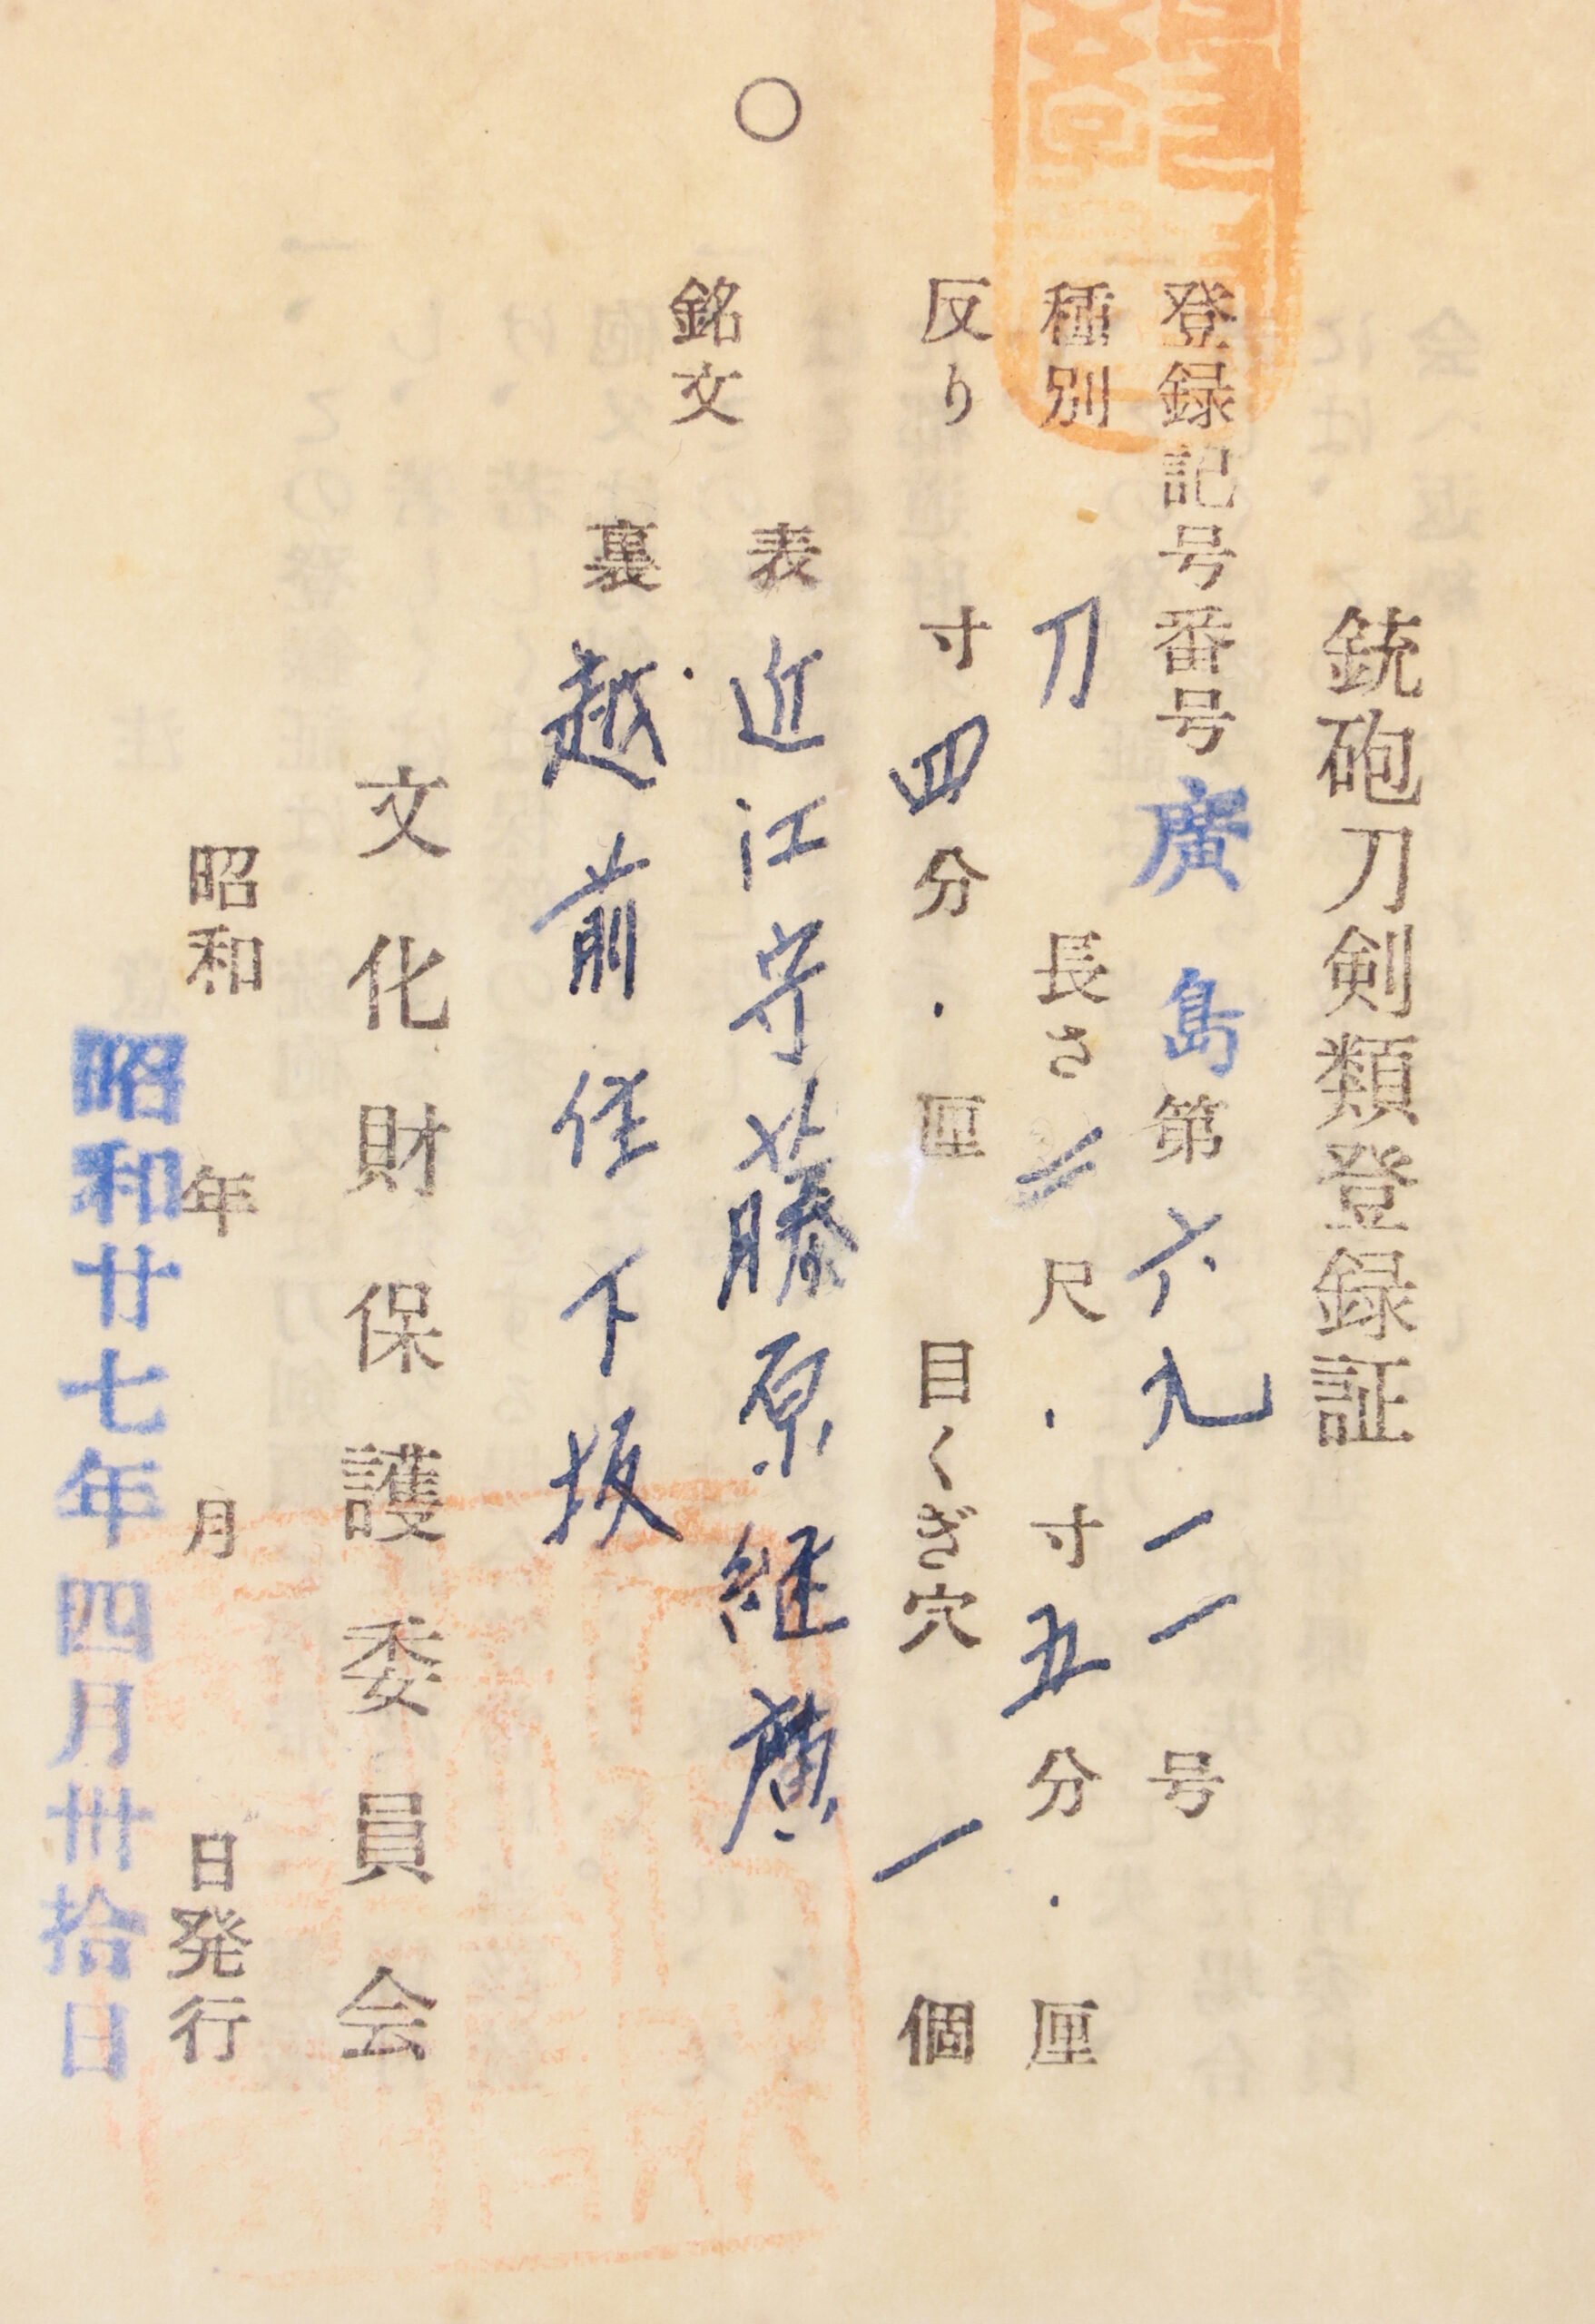 銃砲刀剣類登録証
登録記号番号廣島第六九一一号
種別 刀 長さ 二尺 . 寸五分 . 厘
反り 寸四分 . 厘 目くぎ穴 一個
銘文
表 近江守藤原継廣
裏 越前住下坂
文化財保護委員会
昭和 年 月 日発行
昭和廿七年四月卅拾日